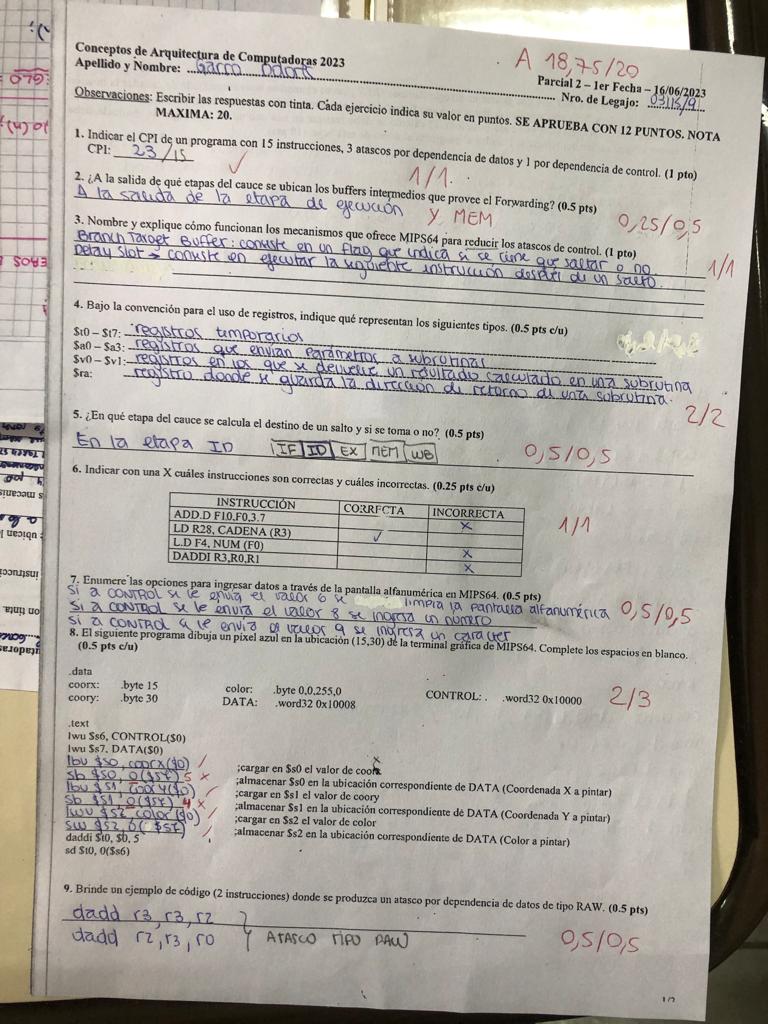 Conceptos de Arquitectura de Computadoras 2023
A 18,75/20
Apellido y Nombre: ...Garro
Parcial 2 – 1er Fecha – 16/06/2023
Nro. de Legajo:
Observaciones: Escribir las respuestas con tinta. Cada ejercicio indica su valor en puntos. SE APRUEBA CON 12 PUNTOS. NOTA
MAXIMA: 20.
1. Indicar el CPI de un programa con 15 instrucciones, 3 atascos por dependencia de datos y 1 por dependencia de control. (1 pto)
CPI: 23/15
1/1.
2. ¿A la salida de qué etapas del cauce se ubican los buffers intermedios que provee el Forwarding? (0.5 pts)
A la salida de la etapa de ejecución y MEM
0,25/0,5
3. Nombre y explique cómo funcionan los mecanismos que ofrece MIPS64 para reducir los atascos de control. (1 pto)
Branch Target Buffer: consiste en un flag que indica si se tiene que saltar o no.
Delay Slot → consiste en ejecutar la siguiente instrucción después de un salto.
1/1
4. Bajo la convención para el uso de registros, indique qué representan los siguientes tipos. (0.5 pts c/u)
$t0 – $t7: registros temporarios
$a0 – $a3: registros que envian parámetros a subrutinas
$v0 – $v1: registros en los que se devuelve un resultado calculado en una subrutina
$ra: registro donde se guarda la dirección de retorno de una subrutina.
2/2
5. ¿En qué etapa del cauce se calcula el destino de un salto y si se toma o no? (0.5 pts)
En la etapa ID IF ID EX MEM WB
0,5/0,5
6. Indicar con una X cuáles instrucciones son correctas y cuáles incorrectas. (0.25 pts c/u)
INSTRUCCIÓN CORRECTA INCORRECTA
ADD.D F10,F0,3.7 X
LD R28, CADENA (R3) ✓
L.D F4, NUM (F0) X
DADDI R3,R0,R1 X
1/1
7. Enumere las opciones para ingresar datos a través de la pantalla alfanumérica en MIPS64. (0.5 pts)
si a CONTROL se le envia el valor 6 se limpia la pantalla alfanumérica
si a CONTROL se le envia el valor 8 se ingresa un numero
si a CONTROL se le envia el valor 9 se ingresa un caracter
0,5/0,5
8. El siguiente programa dibuja un píxel azul en la ubicación (15,30) de la terminal gráfica de MIPS64. Complete los espacios en blanco.
(0.5 pts c/u)
.data
coorx: .byte 15 color: .byte 0,0,255,0 CONTROL: . .word32 0x10000
coory: .byte 30 DATA: .word32 0x10008
2/3
.text
lwu $s6, CONTROL($0)
lwu $s7, DATA($0)
lbu $s0, coorx($0) ;cargar en $s0 el valor de coorx
sb $s0, 0($s7) 5 x ;almacenar $s0 en la ubicación correspondiente de DATA (Coordenada X a pintar)
lbu $s1, coory($0) ;cargar en $s1 el valor de coory
sb $s1, 0($s7) 4 x ;almacenar $s1 en la ubicación correspondiente de DATA (Coordenada Y a pintar)
lwu $s2, color($0) ;cargar en $s2 el valor de color
sw $s2, 0($s7) ;almacenar $s2 en la ubicación correspondiente de DATA (Color a pintar)
daddi $t0, $0, 5
sd $t0, 0($s6)
9. Brinde un ejemplo de código (2 instrucciones) donde se produzca un atasco por dependencia de datos de tipo RAW. (0.5 pts)
dadd r3, r3, r2
dadd r2, r3, r0 ATASCO TIPO RAW
0,5/0,5